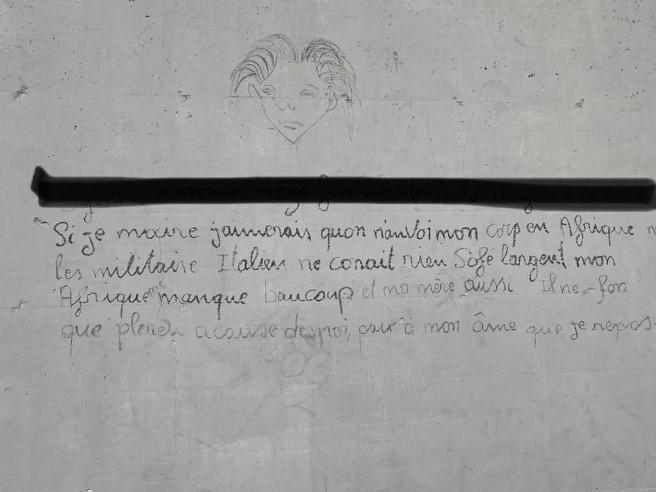 Si je maure jaimerais quon nanvoi mon corp en Afrique
les militaire Italien ne conait rien Sofe largent mon
Afrique manque baucoup et ma mère aussi Il ne fon
que pleren acause de moi, paix à mon âme que je repos